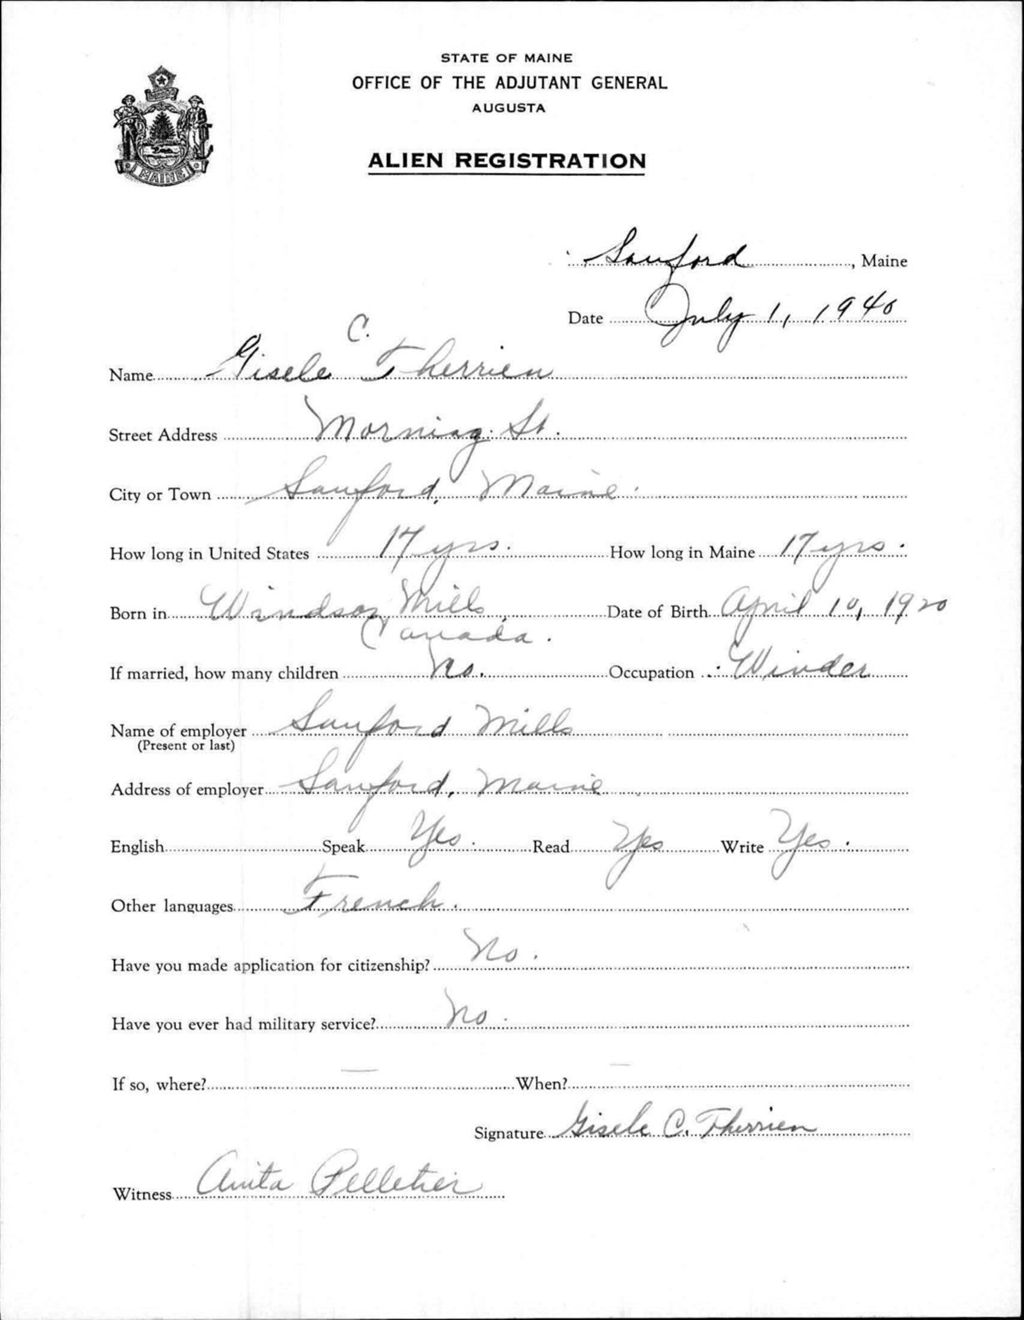 STATE OF MAINE
OFFICE OF THE ADJUTANT GENERAL
AUGUSTA
MAINE
ALIEN REGISTRATION
Sanford, Maine
Date July 1, 1940
Name Gisele C. Therrien
Street Address Morning St.
City or Town Sanford, Maine.
How long in United States 17 yrs. How long in Maine 17 yrs.
Born in Windsor Mills Date of Birth April 10, 1920
Canada.
If married, how many children No. Occupation Winder
Name of employer Sanford Mills
(Present or last)
Address of employer Sanford, Maine
English Speak Yes. Read Yes Write Yes.
Other languages French.
Have you made application for citizenship? No.
Have you ever had military service? No.
If so, where? — When? —
Signature Gisele C. Therrien
Witness Anita Pelletier